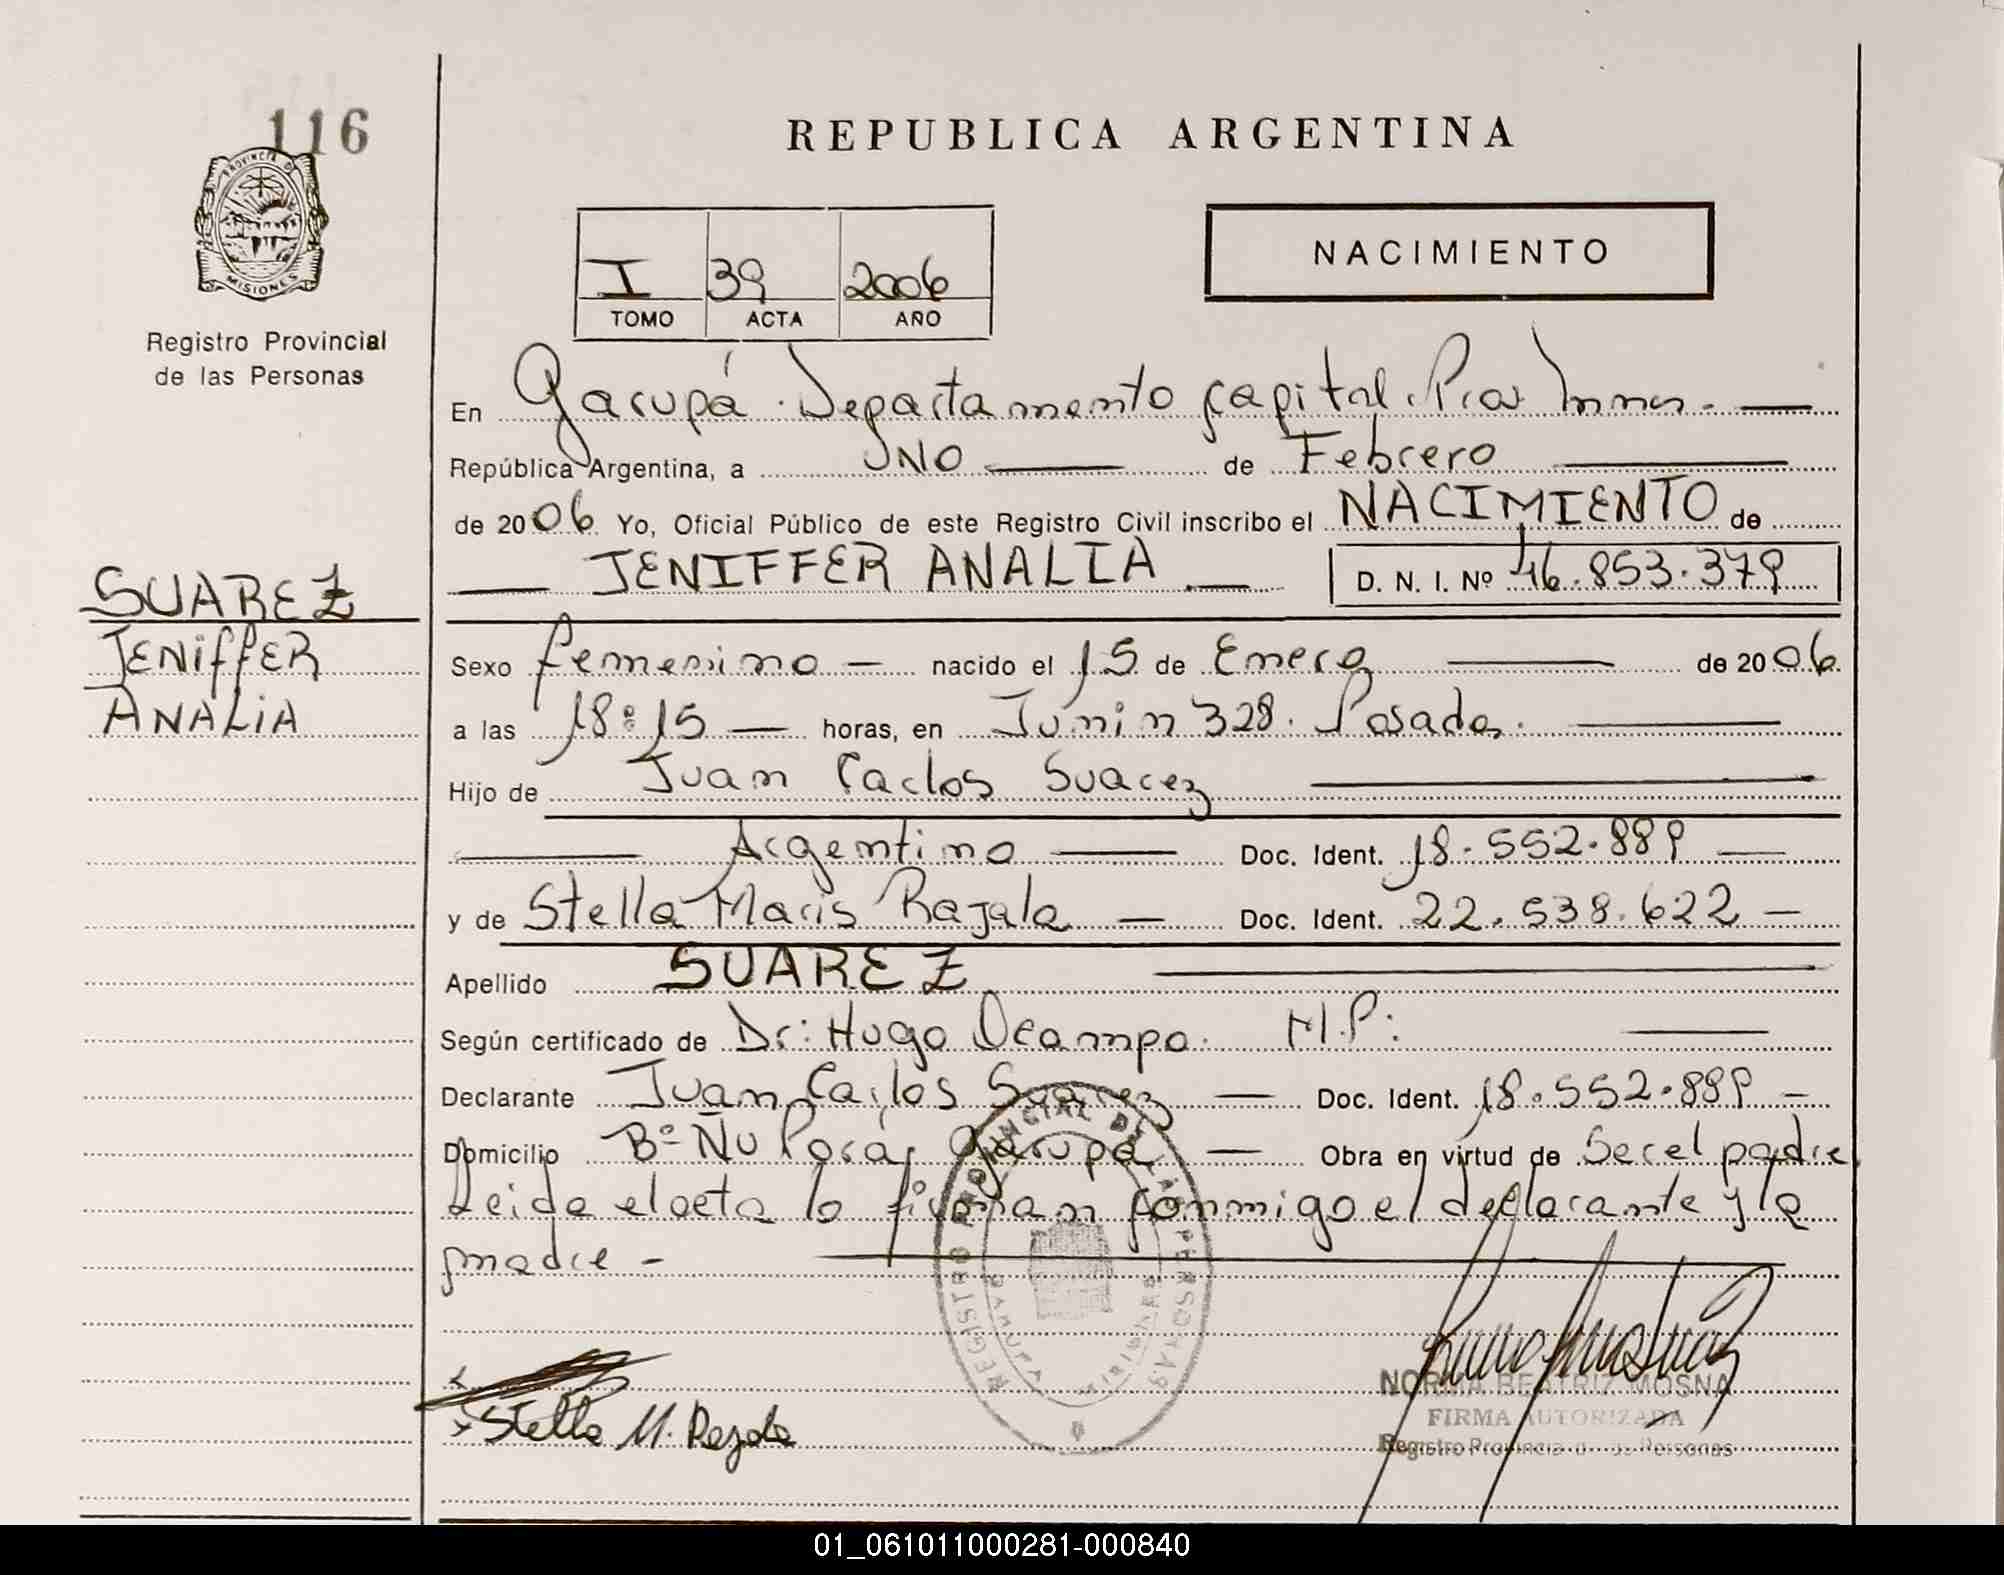 116
PROVINCIA DE
MISIONES
Registro Provincial
de las Personas
REPUBLICA ARGENTINA
NACIMIENTO
I 39 2006
TOMO ACTA AÑO
En Garupá. Departamento Capital. Pcia Mnes.
República Argentina, a UNO de Febrero
de 2006 Yo, Oficial Público de este Registro Civil inscribo el NACIMIENTO de
JENIFFER ANALIA. D. N. I. Nº 46.853.379
SUAREZ
JENIFFER
ANALIA
Sexo femenino nacido el 15 de Enero de 2006.
a las 18:15 horas, en Junin 328. Posadas.
Hijo de Juan Carlos Suarez
Argentino Doc. Ident. 18.552.889
y de Stella Maris Rajala Doc. Ident. 22.538.622
Apellido SUAREZ
Según certificado de Dr: Hugo Ocampo. M.P:
Declarante Juan Carlos Suarez Doc. Ident. 18.552.889
Domicilio Bº Ñu Porá, Garupá Obra en virtud de Ser el padre
Leida el acta la firman conmigo el declarante y la
madre
REGISTRO PROVINCIAL DE LAS PERSONAS
GARUPA
MISIONES
Stella M. Rajala
NORMA BEATRIZ MOSNA
FIRMA AUTORIZADA
Registro Provincial de las Personas
01_061011000281-000840